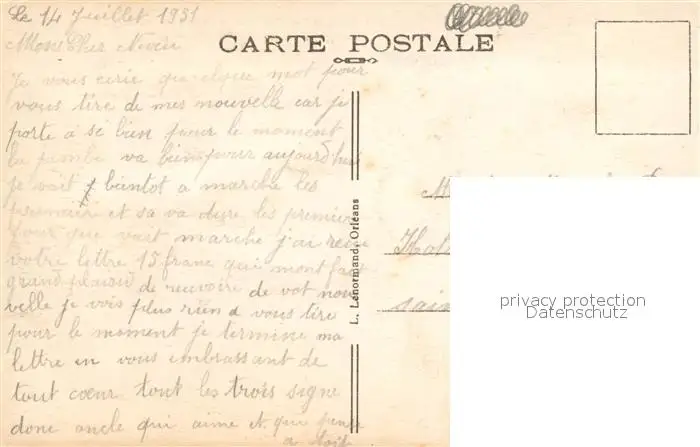 Le 14 Juillet 1931
CARTE POSTALE
Mon Cher Neveu
Je vous ecrie quelque mot pour
vous tire de mes nouvelle car je
porte a sé bien pour le moment
la jambe va bien pour aujourd'hui
je vait bientot a marche les
premier et sa va dure les premier
jour que vait marche j'ai reçu
votre lettre 15 franc qui mont fait
grand plaisir de recevoire de vot nou
velle je vois plus rien a vous tire
pour le moment je termine ma
lettre en vous embrassant de
tout cœur tout les trois signe
donc oncle qui aime et qui pense
a toit
L. Lenormand, Orléans
privacy protection
Datenschutz